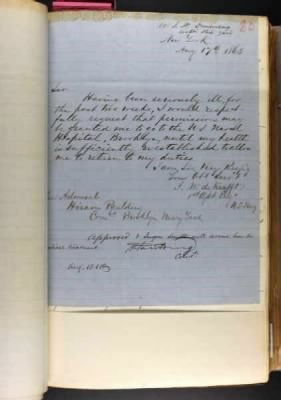 New York
Aug 17th 1863
Sir
Having been seriously ill for
the past two weeks, I would respect-
fully request that permission may
be granted me to go to the U.S. Naval
Hospital, Brooklyn, until my health
is sufficiently reestablished to allow
me to return to my duties
I am Sir Very Resp'y
Your Obt Serv't
J. W. de Krafft
U.S. Navy
Admiral
Hiram Paulding
Com'g Brooklyn Navy Yard
Approved
Aug. 18 1863